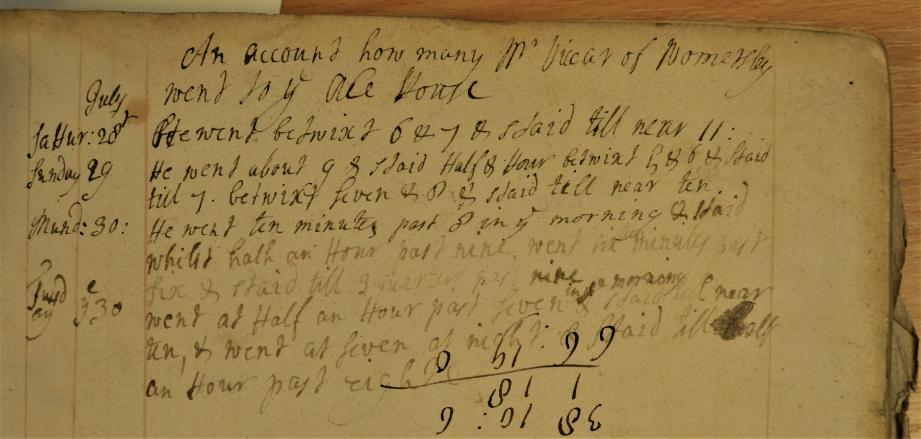 An account how many Mr Vicar of Womersley
July went to ye Ale House
Sattur: 28t He went betwixt 6 & 7 & staid till near 11:
Sunday 29 He went about 9 & staid Half & Hour betwixt 5 & 6 & staid
till 7. betwixt seven & 8 & staid till near ten.
Mund: 30: He went ten minutes past 8 in ye morning & staid
whilst half an Hour past nine, went six minutes past
six & staid till 3 quarters past nine
Tusd ay ye 30 went at Half an Hour past seven in ye morning & staid till near
ten, & went at seven at night: & staid till half
an Hour past eight